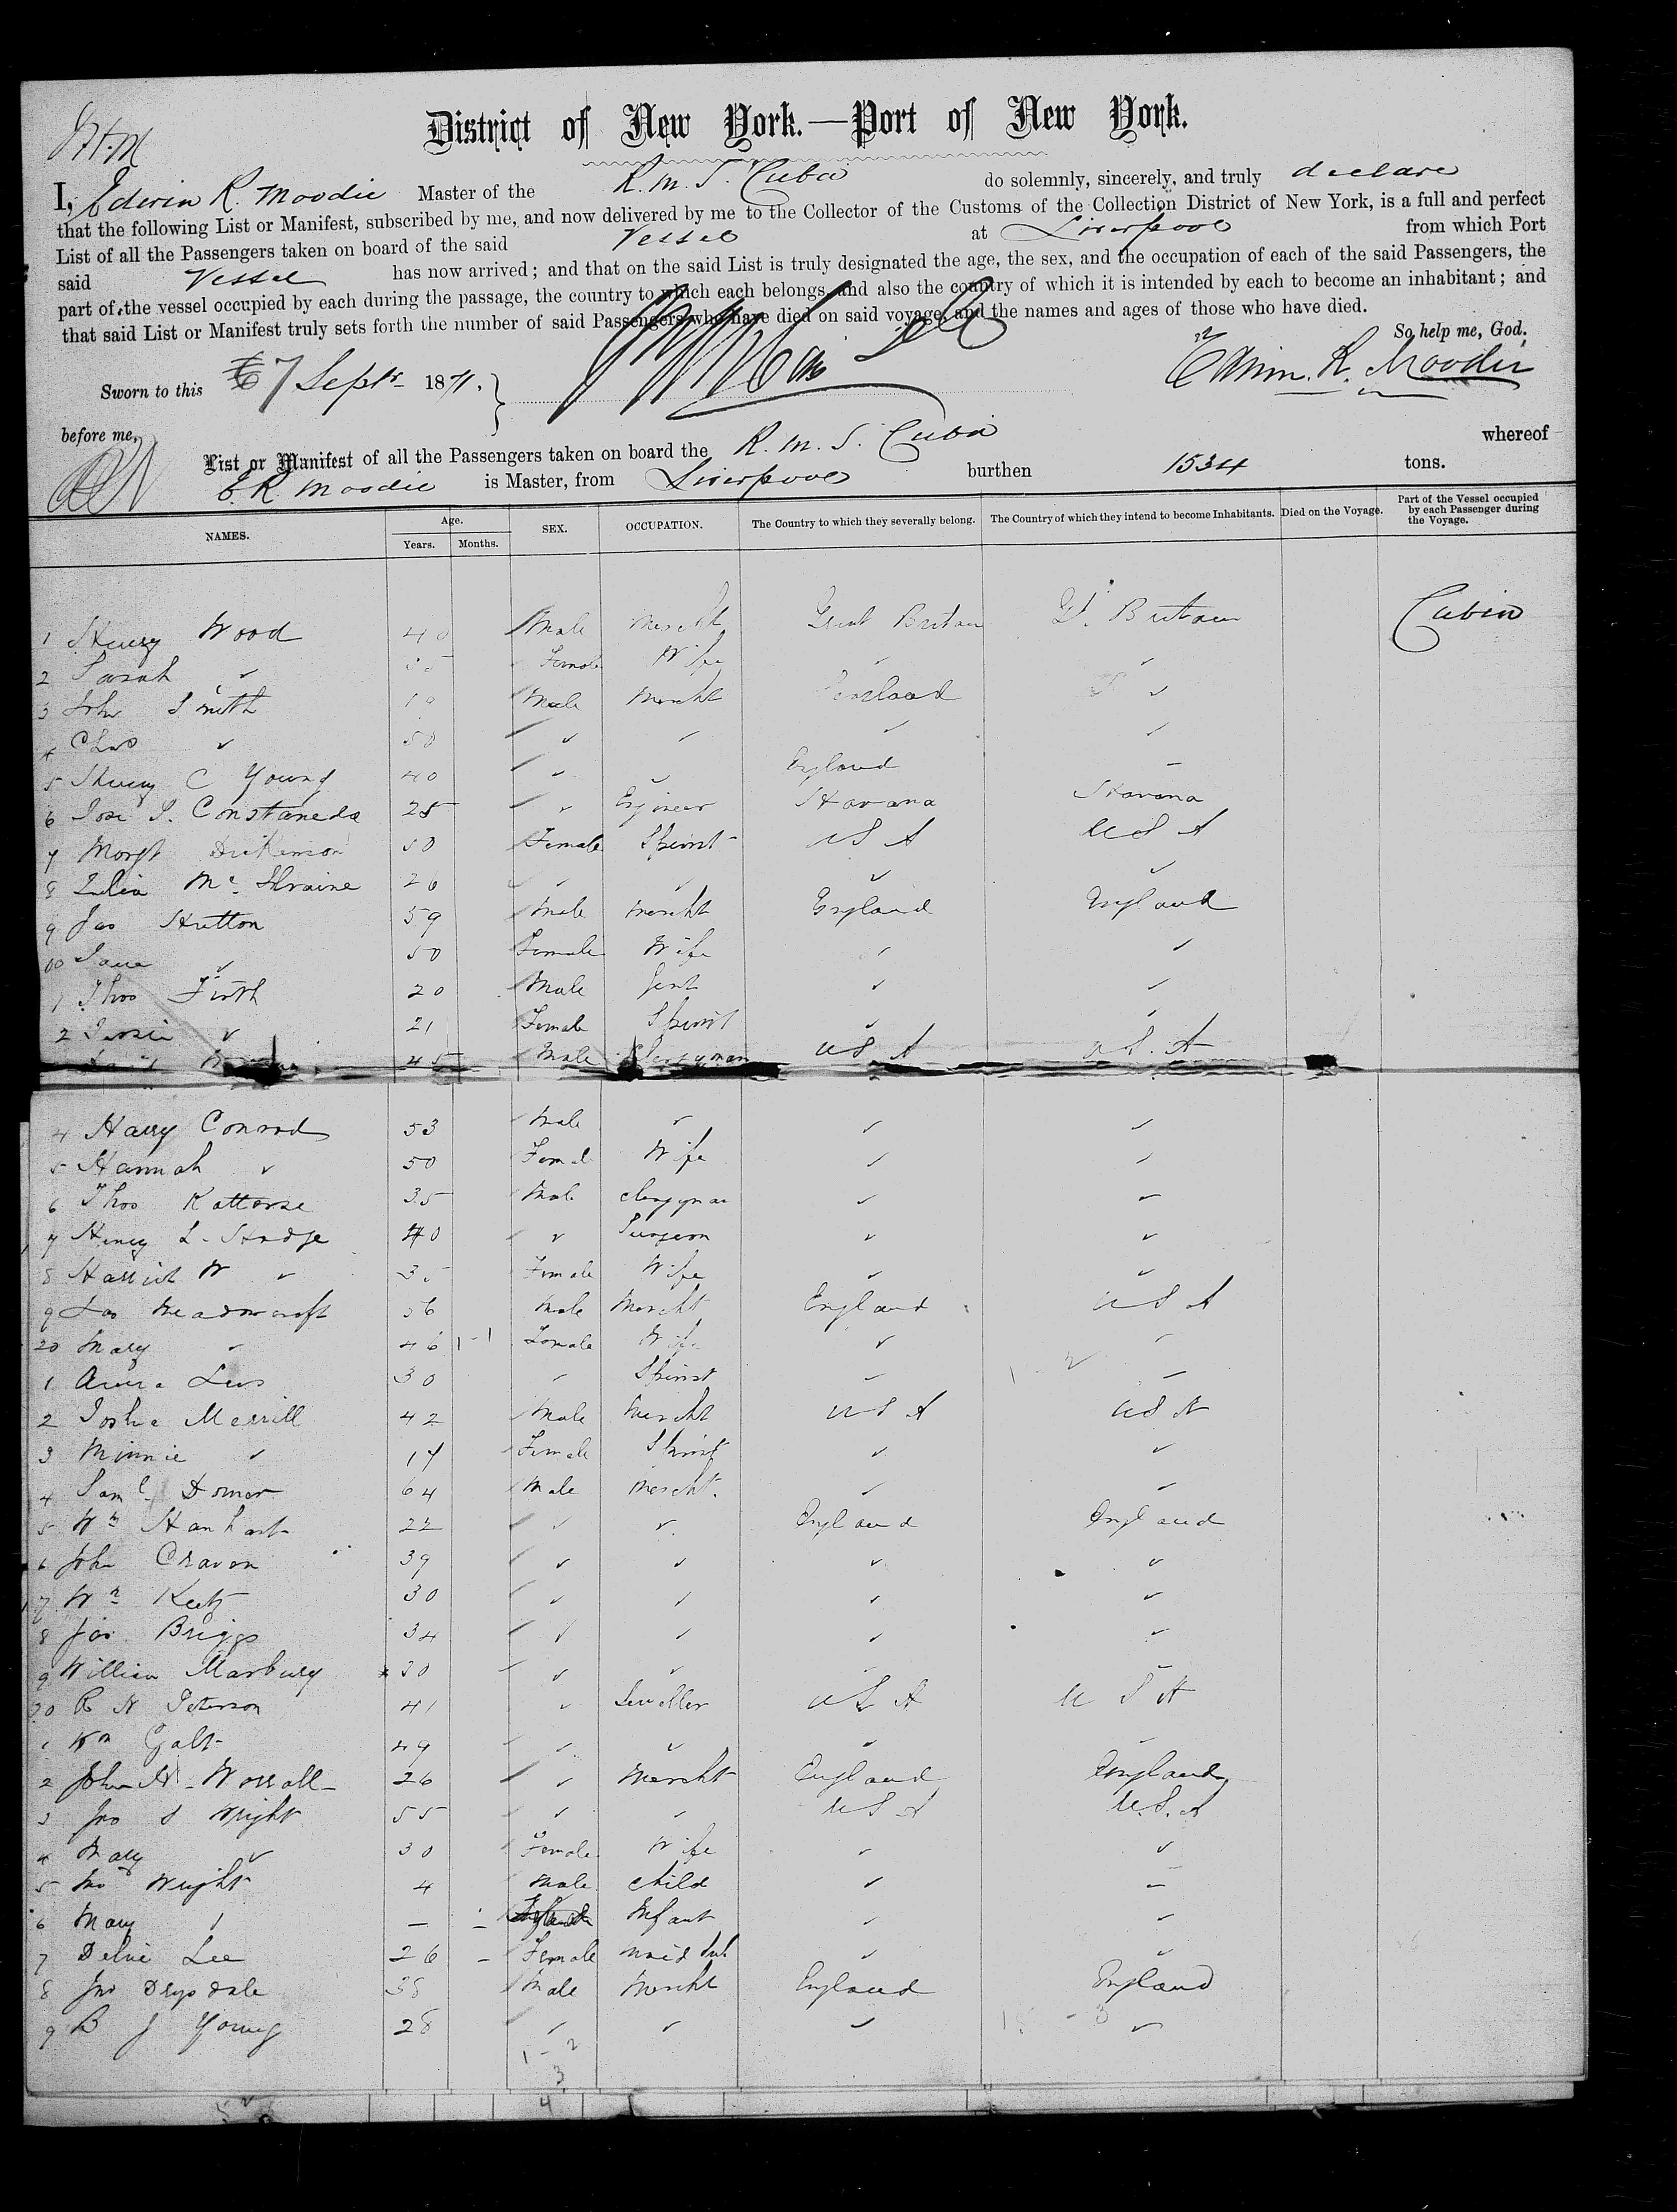 District of New York.—Port of New York.
I, Edwin R. Moodie Master of the R. M. S. Cuba do solemnly, sincerely, and truly declare
that the following List or Manifest, subscribed by me, and now delivered by me to the Collector of the Customs of the Collection District of New York, is a full and perfect
List of all the Passengers taken on board of the said Vessel at Liverpool from which Port
said Vessel has now arrived; and that on the said List is truly designated the age, the sex, and the occupation of each of the said Passengers, the
part of the vessel occupied by each during the passage, the country to which each belongs, and also the country of which it is intended by each to become an inhabitant; and
that said List or Manifest truly sets forth the number of said Passengers who have died on said voyage, and the names and ages of those who have died.
So help me, God.
Sworn to this 7 Septr 1871. Edwin. R. Moodie
before me,
List or Manifest of all the Passengers taken on board the R. M. S. Cuba whereof
E. R. Moodie is Master, from Liverpool burthen 1534 tons.
NAMES. Age. Years. Months. SEX. OCCUPATION. The Country to which they severally belong. The Country of which they intend to become Inhabitants. Died on the Voyage. Part of the Vessel occupied by each Passenger during the Voyage.
1 Henry Wood 40 Male Mercht Great Britain Gt. Britain Cabin
2 Sarah ✓ 35 Female Wife ✓ ✓
3 John Smith Male Mercht ✓
4 Chas ✓ 50 ✓ ✓ ✓ ✓
5 Henry C Young 40 ✓ ✓ England
6 Jose S. Constaneda 25 ✓ Engineer Havana Havana
7 Margt Dickenson 50 Female Spinst U S A U S A
8 Julia Mc Ilvaine 26 ✓ ✓ ✓ ✓
9 Jas Hutton 59 Male Mercht England England
10 Jane ✓ 50 Female Wife ✓ ✓
1 Thos Firth 20 Male Gent ✓ ✓
2 Jessie ✓ 21 Female Spinst ✓ ✓
45 Male Clergyman U S. A U. S. A
4 Harry Conrad 53 Male ✓ ✓ ✓
5 Hannah ✓ 50 Femal Wife ✓ ✓
6 Thos 35 Male Clergyman ✓ ✓
7 Henry L. Hodge 40 ✓ Surgeon ✓ ✓
8 Harriet W ✓ 35 Female Wife ✓ ✓
9 Jas Meadowcroft 56 Male Mercht England U S A
20 Mary ✓ 46 Female Wife ✓ ✓
1 30 ✓ Spinst
2 Joshua Merrill 42 Male Mercht U S A U S A
3 Minnie ✓ 17 Female Spinst ✓ ✓
4 Saml Domer 64 Male Mercht. ✓ ✓
5 Wm Hanhart 22 ✓ ✓ England England
6 John Craven 39 ✓ ✓ ✓ ✓
7 Wm 30 ✓ ✓ ✓ ✓
8 Jas Briggs 34 ✓ ✓ ✓ ✓
9 William Marbury 30 ✓ ✓ ✓ ✓
30 R H Peterson 41 ✓ Jeweller U S A U S A
1 Wm Galt 49 ✓ ✓ ✓
2 John H. Worrall 26 ✓ Mercht England England
3 Jno S Wright 55 ✓ ✓ U S A U. S. A
4 Mary ✓ 30 Female Wife ✓ ✓
5 Jno Wright 4 Male Child ✓ –
6 Mary – Infant ✓ ✓
7 Delia Lee 26 – Female Maid ✓ ✓
8 Jno Drysdale 38 Male Mercht England England
9 B J Young 28 ✓ ✓ ✓ ✓
1 - 2
3
4